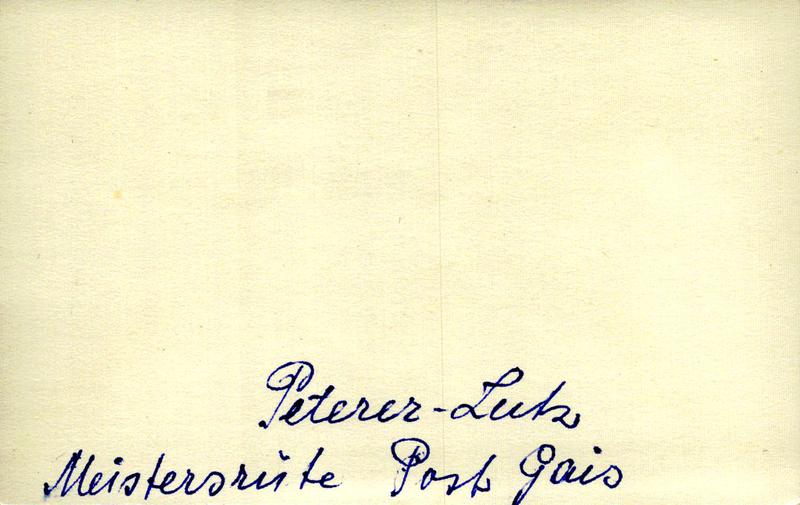 Peterer-Lutz
Meistersrüte Post Gais